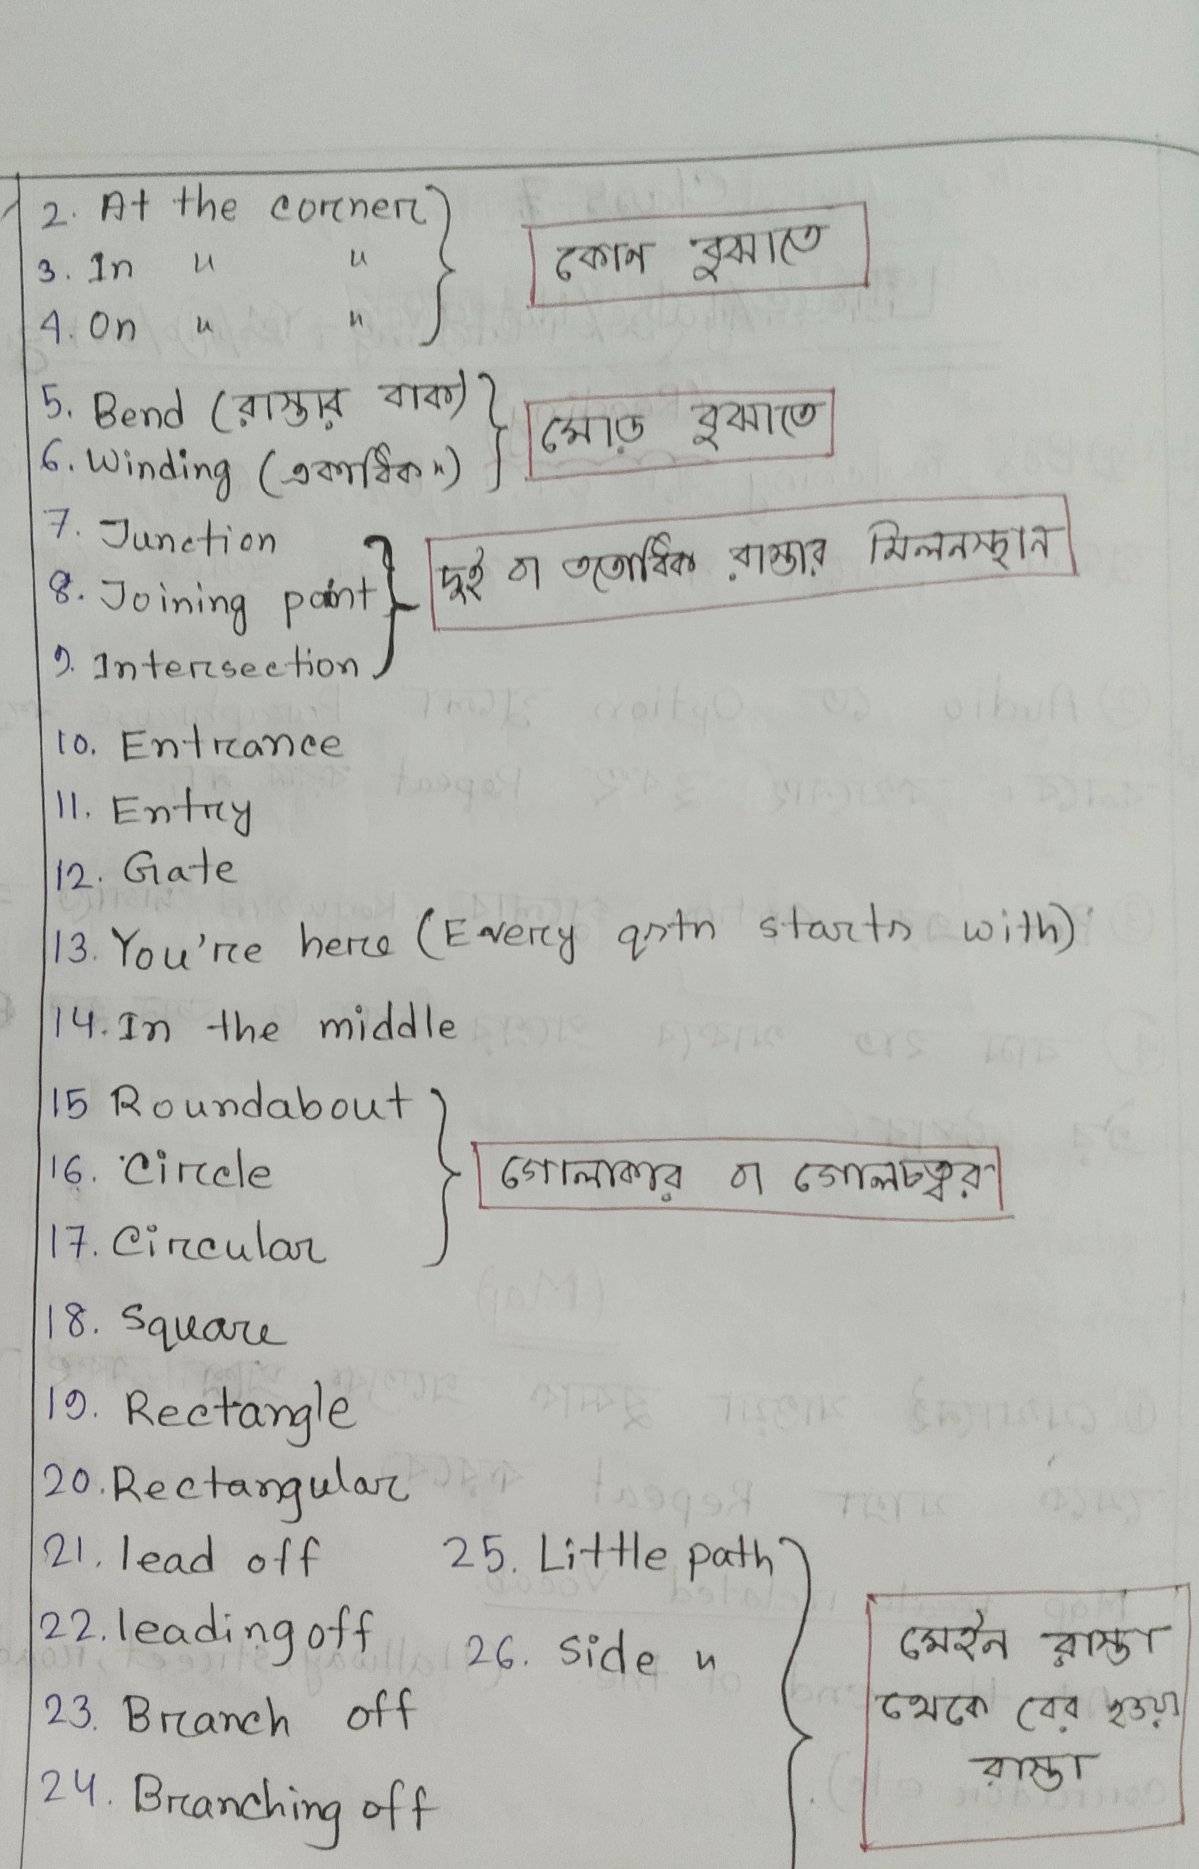 2. At the corner
3. In " "
4. On " "
কোন বুঝাতে
5. Bend (রাস্তার বাক)
6. Winding (একাধিক ")
মোড় বুঝাতে
7. Junction
8. Joining point
9. Intersection
দুই বা ততোধিক রাস্তার মিলনস্থান
10. Entrance
11. Entry
12. Gate
13. You're here (Every qstn starts with)
14. In the middle
15 Roundabout
16. Circle
17. Circular
গোলাকার বা গোলচত্বর
18. Square
19. Rectangle
20. Rectangular
21. lead off
22. leading off
23. Branch off
24. Branching off
25. Little path
26. Side "
মেইন রাস্তা
থেকে বের হওয়া
রাস্তা